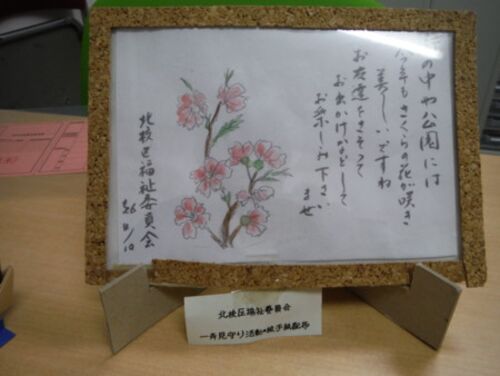 の中や公園には
今年もさくらの花が咲き
美しいですね
お友達をさそって
お出かけなどして
お楽しみ下さい
ませ
北校区福祉委員会
北校区福祉委員会
一斉見守り活動の絵手紙配布